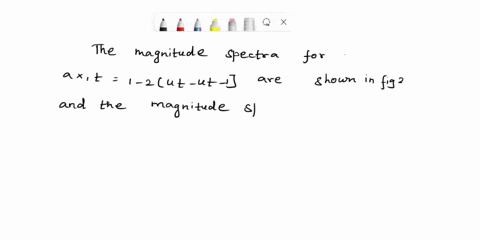 The magnitude spectra for
a x, t = 1-2[ut-ut-1] are shown in fig 2
and the magnitude sp